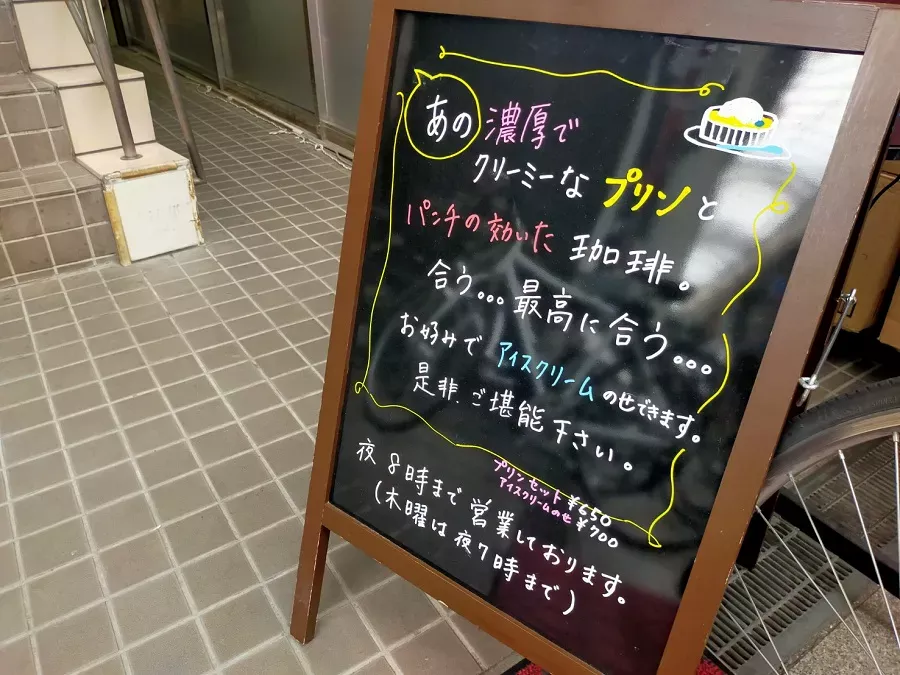 あの濃厚で
クリーミーなプリンと
パンチの効いた珈琲。
合う... 最高に合う....
お好みでアイスクリームのせできます。
是非、ご堪能下さい。
プリンセット ¥650
アイスクリームのせ ¥700
夜8時まで営業しております。
(木曜は夜7時まで)